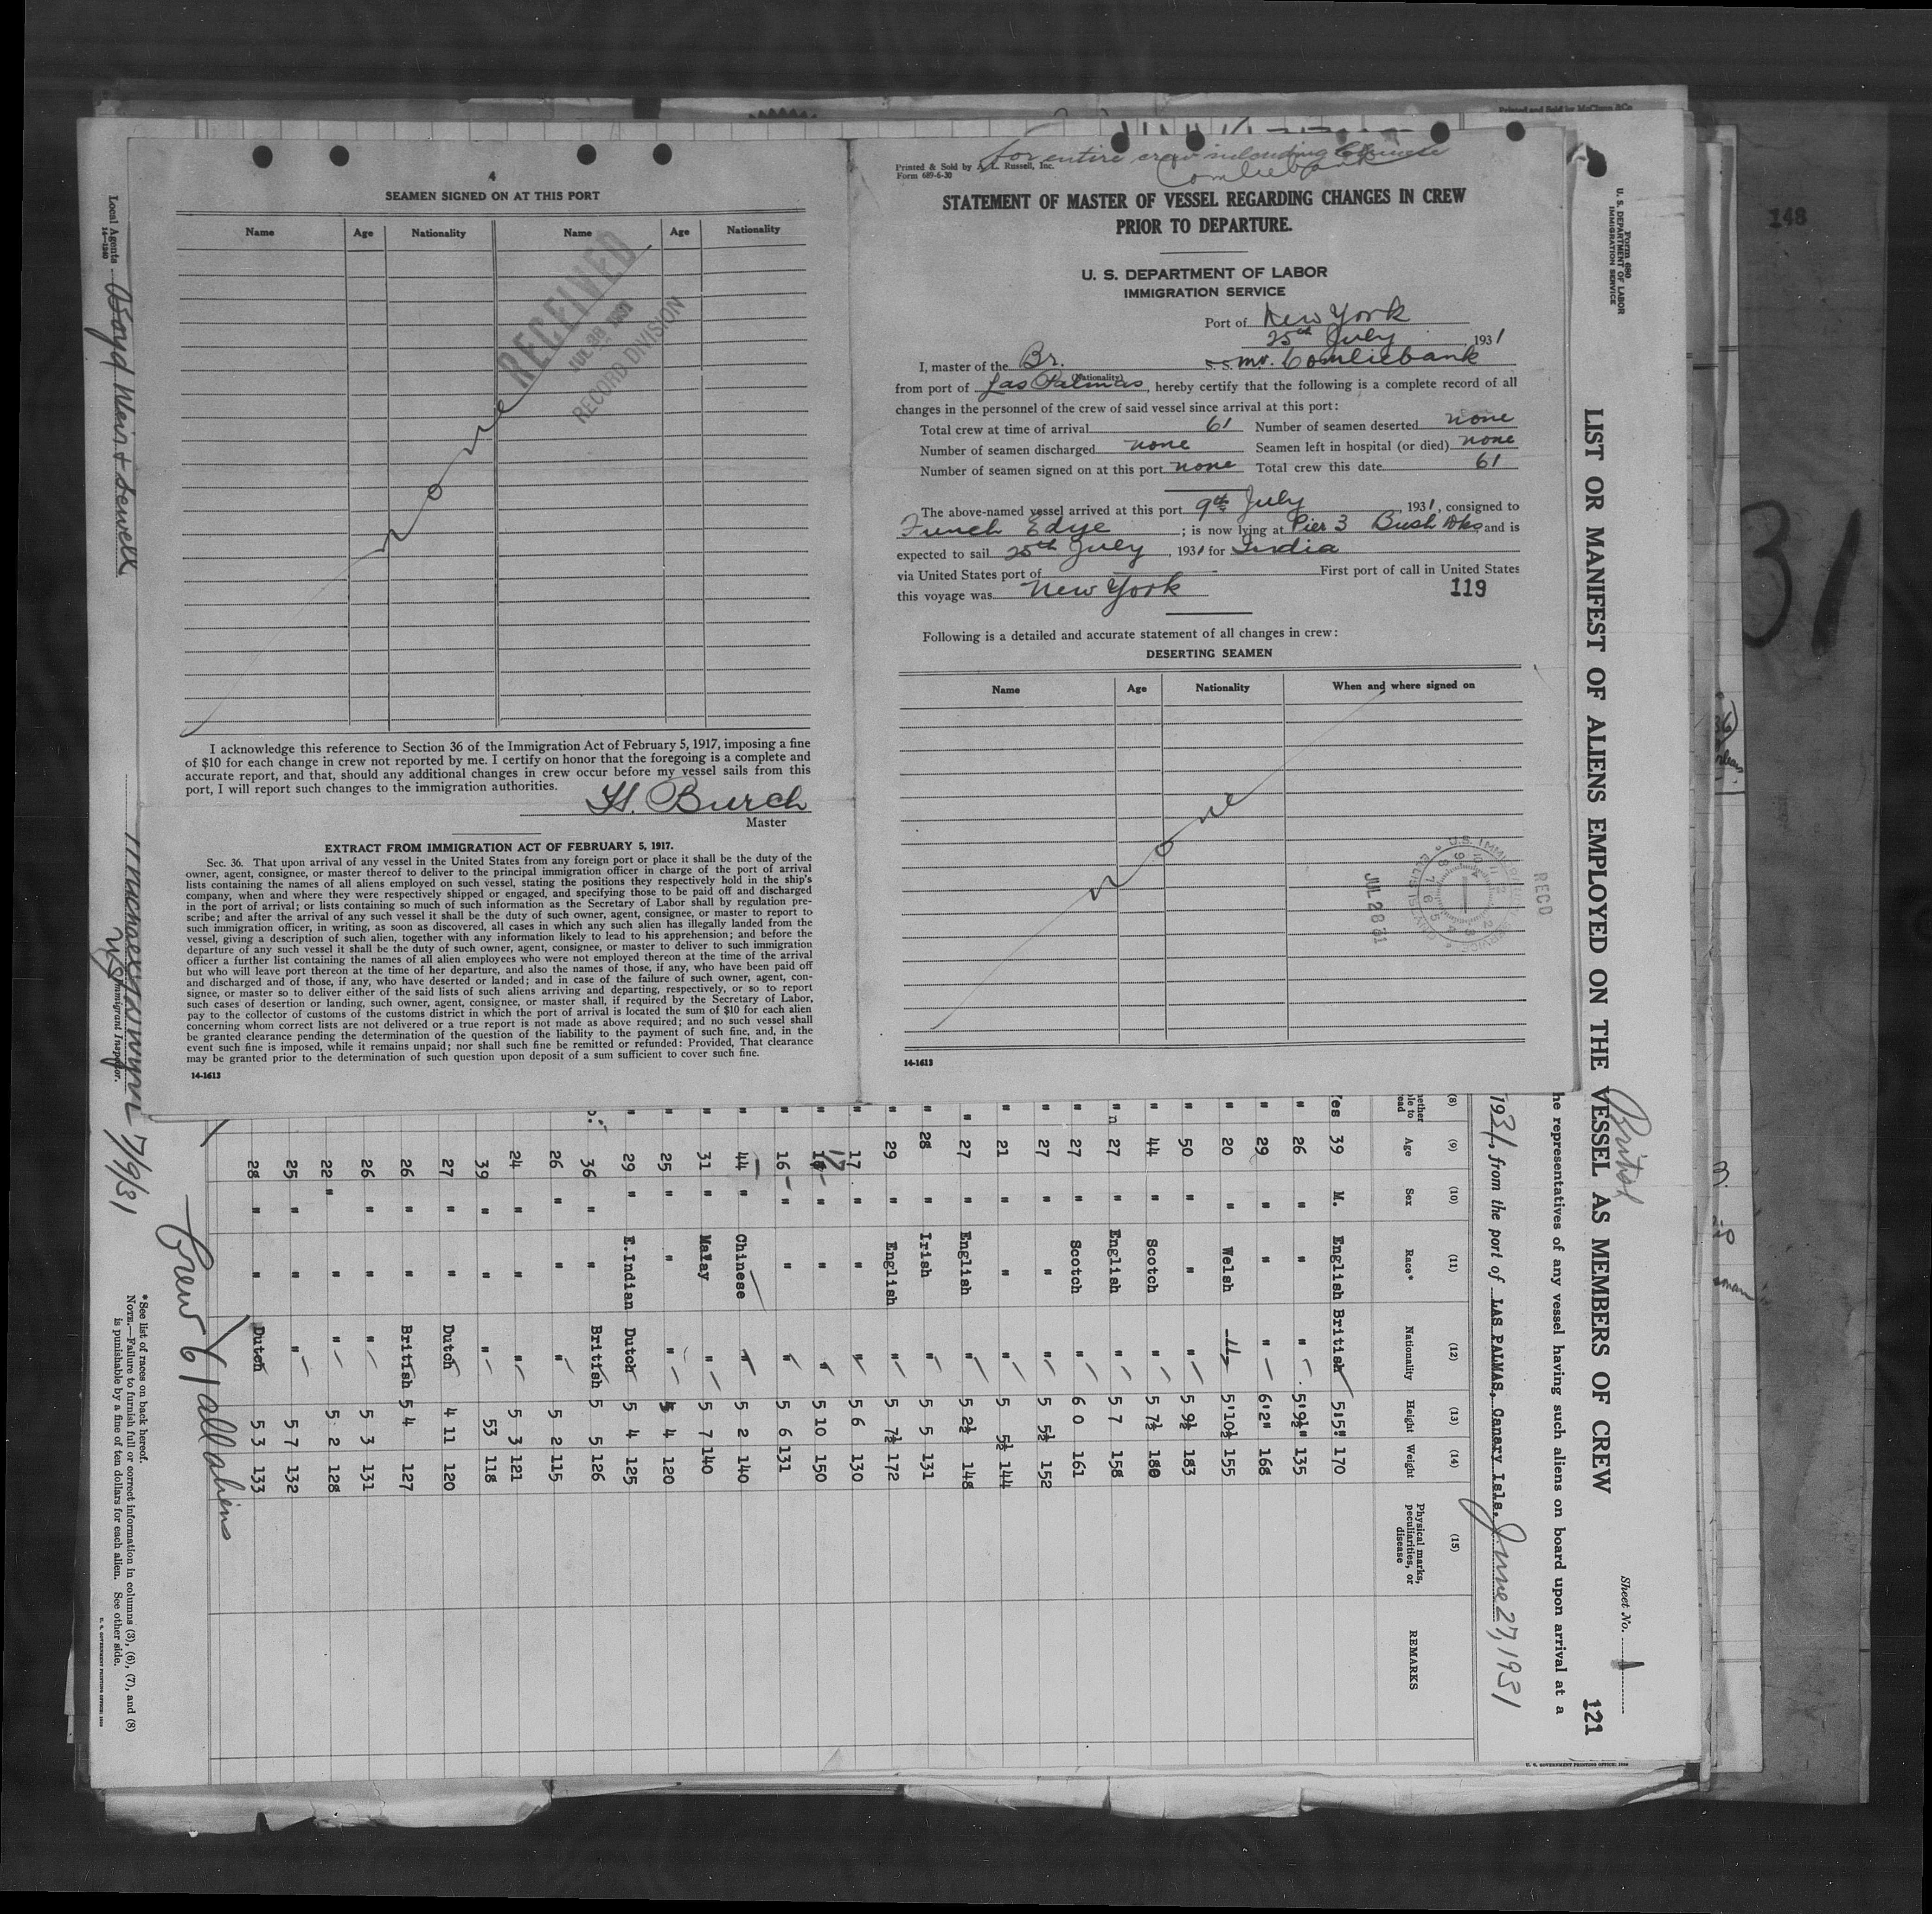 4
SEAMEN SIGNED ON AT THIS PORT
Name Age Nationality Name Age Nationality
RECEIVED
JUL 30 1931
RECORD DIVISION
none
I acknowledge this reference to Section 36 of the Immigration Act of February 5, 1917, imposing a fine
of $10 for each change in crew not reported by me. I certify on honor that the foregoing is a complete and
accurate report, and that, should any additional changes in crew occur before my vessel sails from this
port, I will report such changes to the immigration authorities.
H. Burch
Master
EXTRACT FROM IMMIGRATION ACT OF FEBRUARY 5, 1917.
Sec. 36. That upon arrival of any vessel in the United States from any foreign port or place it shall be the duty of the
owner, agent, consignee, or master thereof to deliver to the principal immigration officer in charge of the port of arrival
lists containing the names of all aliens employed on such vessel, stating the positions they respectively hold in the ship's
company, when and where they were respectively shipped or engaged, and specifying those to be paid off and discharged
in the port of arrival; or lists containing so much of such information as the Secretary of Labor shall by regulation pre-
scribe; and after the arrival of any such vessel it shall be the duty of such owner, agent, consignee, or master to report to
such immigration officer, in writing, as soon as discovered, all cases in which any such alien has illegally landed from the
vessel, giving a description of such alien, together with any information likely to lead to his apprehension; and before the
departure of any such vessel it shall be the duty of such owner, agent, consignee, or master to deliver to such immigration
officer a further list containing the names of all alien employees who were not employed thereon at the time of the arrival
but who will leave port thereon at the time of her departure, and also the names of those, if any, who have been paid off
and discharged and of those, if any, who have deserted or landed; and in case of the failure of such owner, agent, con-
signee, or master so to deliver either of the said lists of such aliens arriving and departing, respectively, or so to report
such cases of desertion or landing, such owner, agent, consignee, or master shall, if required by the Secretary of Labor,
pay to the collector of customs of the customs district in which the port of arrival is located the sum of $10 for each alien
concerning whom correct lists are not delivered or a true report is not made as above required; and no such vessel shall
be granted clearance pending the determination of the question of the liability to the payment of such fine, and, in the
event such fine is imposed, while it remains unpaid; nor shall such fine be remitted or refunded: Provided, That clearance
may be granted prior to the determination of such question upon deposit of a sum sufficient to cover such fine.
14-1613
for entire crew including Chinese
Comliebank
Printed & Sold by A. L. Russell, Inc.
Form 689-6-30
STATEMENT OF MASTER OF VESSEL REGARDING CHANGES IN CREW
PRIOR TO DEPARTURE.
U. S. DEPARTMENT OF LABOR
IMMIGRATION SERVICE
Port of New York
25th July, 1931
I, master of the Br. S. S. mv. Comliebank
(Nationality)
from port of Las Palmas, hereby certify that the following is a complete record of all
changes in the personnel of the crew of said vessel since arrival at this port:
Total crew at time of arrival 61 Number of seamen deserted none
Number of seamen discharged none Seamen left in hospital (or died) none
Number of seamen signed on at this port none Total crew this date 61
The above-named vessel arrived at this port 9th July, 1931, consigned to
Funch Edye; is now lying at Pier 3 Bush Dks and is
expected to sail 25th July, 1931 for India
via United States port of - First port of call in United States
this voyage was New York
119
Following is a detailed and accurate statement of all changes in crew:
DESERTING SEAMEN
Name Age Nationality When and where signed on
none
JUL 28 31
RECD
14-1613
Form 680
U. S. DEPARTMENT OF LABOR
IMMIGRATION SERVICE
Sheet No. 1
121
British
LIST OR MANIFEST OF ALIENS EMPLOYED ON THE VESSEL AS MEMBERS OF CREW
he representatives of any vessel having such aliens on board upon arrival at a
1931, from the port of LAS PALMAS, Canary Isls. June 27, 1931
(8) (9) (10) (11) (12) (13) (14) (15)
Age Sex Race* Nationality Height Weight Physical marks, peculiarities, or disease REMARKS
Yes 39 M. English British 5'5" 170
" 26 " " " 5'9½" 135
" 29 " " " 6'2" 168
" 20 " Welsh " 5'10½ 155
" 50 " " " 5 9½ 183
" 44 " Scotch " 5 7½ 180
" 27 " English " 5 7 158
" 27 " Scotch " 6 0 161
" 27 " " " 5 5½ 152
" 21 " " " 5 5½ 144
" 27 " English " 5 2½ 148
" 28 " Irish " 5 5 131
" 29 " English " 5 7½ 172
" 17 " " " 5 6 130
" 17 " " " 5 10 150
" 16 " " " 5 6 131
" 44 " Chinese " 5 2 140
" 31 " Malay " 5 7 140
" 25 " " " 4 120
" 29 " E.Indian Dutch 5 4 125
36 " " British 5 5 126
26 " " " 5 2 115
24 " " " 5 3 121
39 " " " 53 118
27 " " Dutch 4 11 120
26 " " British 5 4 127
26 " " " 5 3 131
22 " " " 5 2 128
25 " " " 5 7 132
28 " " Dutch 5 3 133
Crew 61 all aliens
*See list of races on back hereof.
NOTE.—Failure to furnish full or correct information in columns (3), (6), (7), and (8)
is punishable by a fine of ten dollars for each alien. See other side.
Local Agents Boyd Weir & Sewell
14-1240
7/9/31
Immigrant Inspector.
U. S. GOVERNMENT PRINTING OFFICE: 1930
148
31